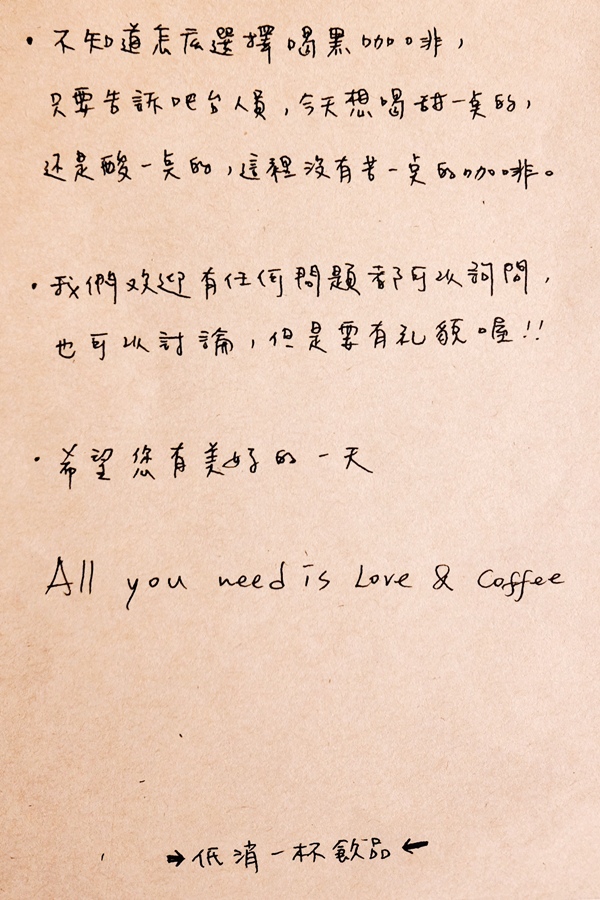 • 不知道怎広選擇喝黑咖啡，
只要告訴吧台人員，今天想喝甜一奌的，
还是酸一奌的，這裡沒有苦一奌的咖啡。
• 我們欢迎有任何問題都可以詢問，
也可以討論，但是要有礼貌喔!!
• 希望您有美好的一天
All you need is Love & Coffee
→低消一杯飲品←